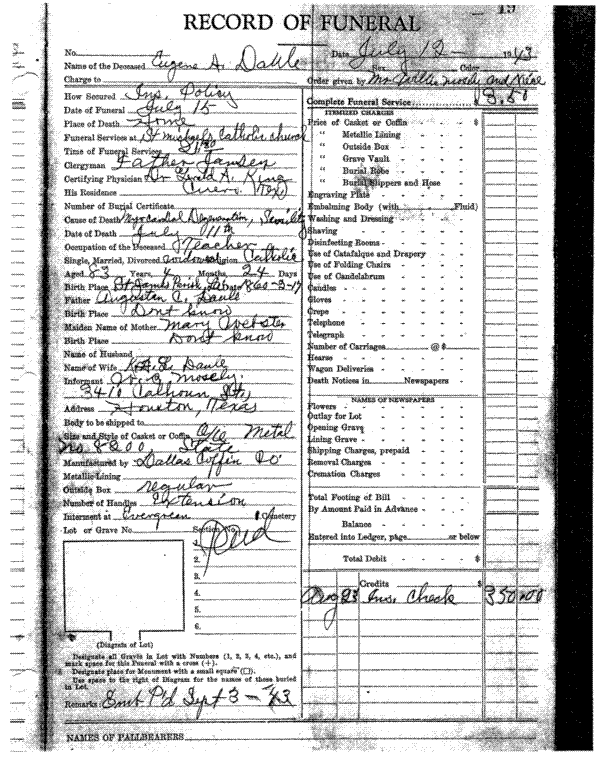 19
RECORD OF FUNERAL
No. Date July 12 - 1943
Name of the Deceased Eugene A. Daule Color
Charge to Order given by Mrs and
How Secured Ins. Policy
Complete Funeral Service
Date of Funeral July 15
ITEMIZED CHARGES
Place of Death Home
Price of Casket or Coffin $
Funeral Services at St Michaels Catholic church
" Metallic Lining
Time of Funeral Services
" Outside Box
Clergyman Father
" Grave Vault
Certifying Physician Dr A. King
" Burial Robe
His Residence Cuero Tex
" Burial Slippers and Hose
Engraving Plate
Number of Burial Certificate
Embalming Body (with Fluid)
Cause of Death Myocardial Degeneration, Senility
Washing and Dressing
Date of Death July 11th
Shaving
Occupation of the Deceased Teacher
Disinfecting Rooms
Single, Married, Divorced widower Religion Catholic
Use of Catafalque and Drapery
Use of Folding Chairs
Aged 83 Years, 4 Months, 24 Days
Use of Candelabrum
Birth Place St James Parish, La 1860-3-17
Candles
Father Augustin C. Daule
Gloves
Birth Place Dont know
Crepe
Maiden Name of Mother Mary Webster
Telephone
Birth Place Dont know
Telegraph
Name of Husband
Number of Carriages @ $
Hearse
Name of Wife Daule
Wagon Deliveries
Informant Mosely
Death Notices in Newspapers
3410 Calhoun St
NAMES OF NEWSPAPERS
Address Houston, Texas
Flowers
Body to be shipped to
Outlay for Lot
Size and Style of Casket or Coffin Metal
Opening Grave
No. 8200 State
Lining Grave
Manufactured by Dallas Coffin Co
Shipping Charges, prepaid
Metallic Lining
Removal Charges
Outside Box regular
Cremation Charges
Number of Handles Extension
Total Footing of Bill
Interment at Evergreen Cemetery
By Amount Paid in Advance
Lot or Grave No. Section No.
Balance
1. Paid
Entered into Ledger, page or below
2.
Total Debit $
3.
Credits $
4.
Aug 23 Ins. Check 350.00
5.
6.
(Diagram of Lot)
Designate all Graves in Lot with Numbers (1, 2, 3, 4, etc.), and
mark space for this Funeral with a cross (+).
Designate place for Monument with a small square (□).
Use space to the right of Diagram for the names of those buried
in Lot.
Remarks: P'd Sept 3 - 43
NAMES OF PALLBEARERS